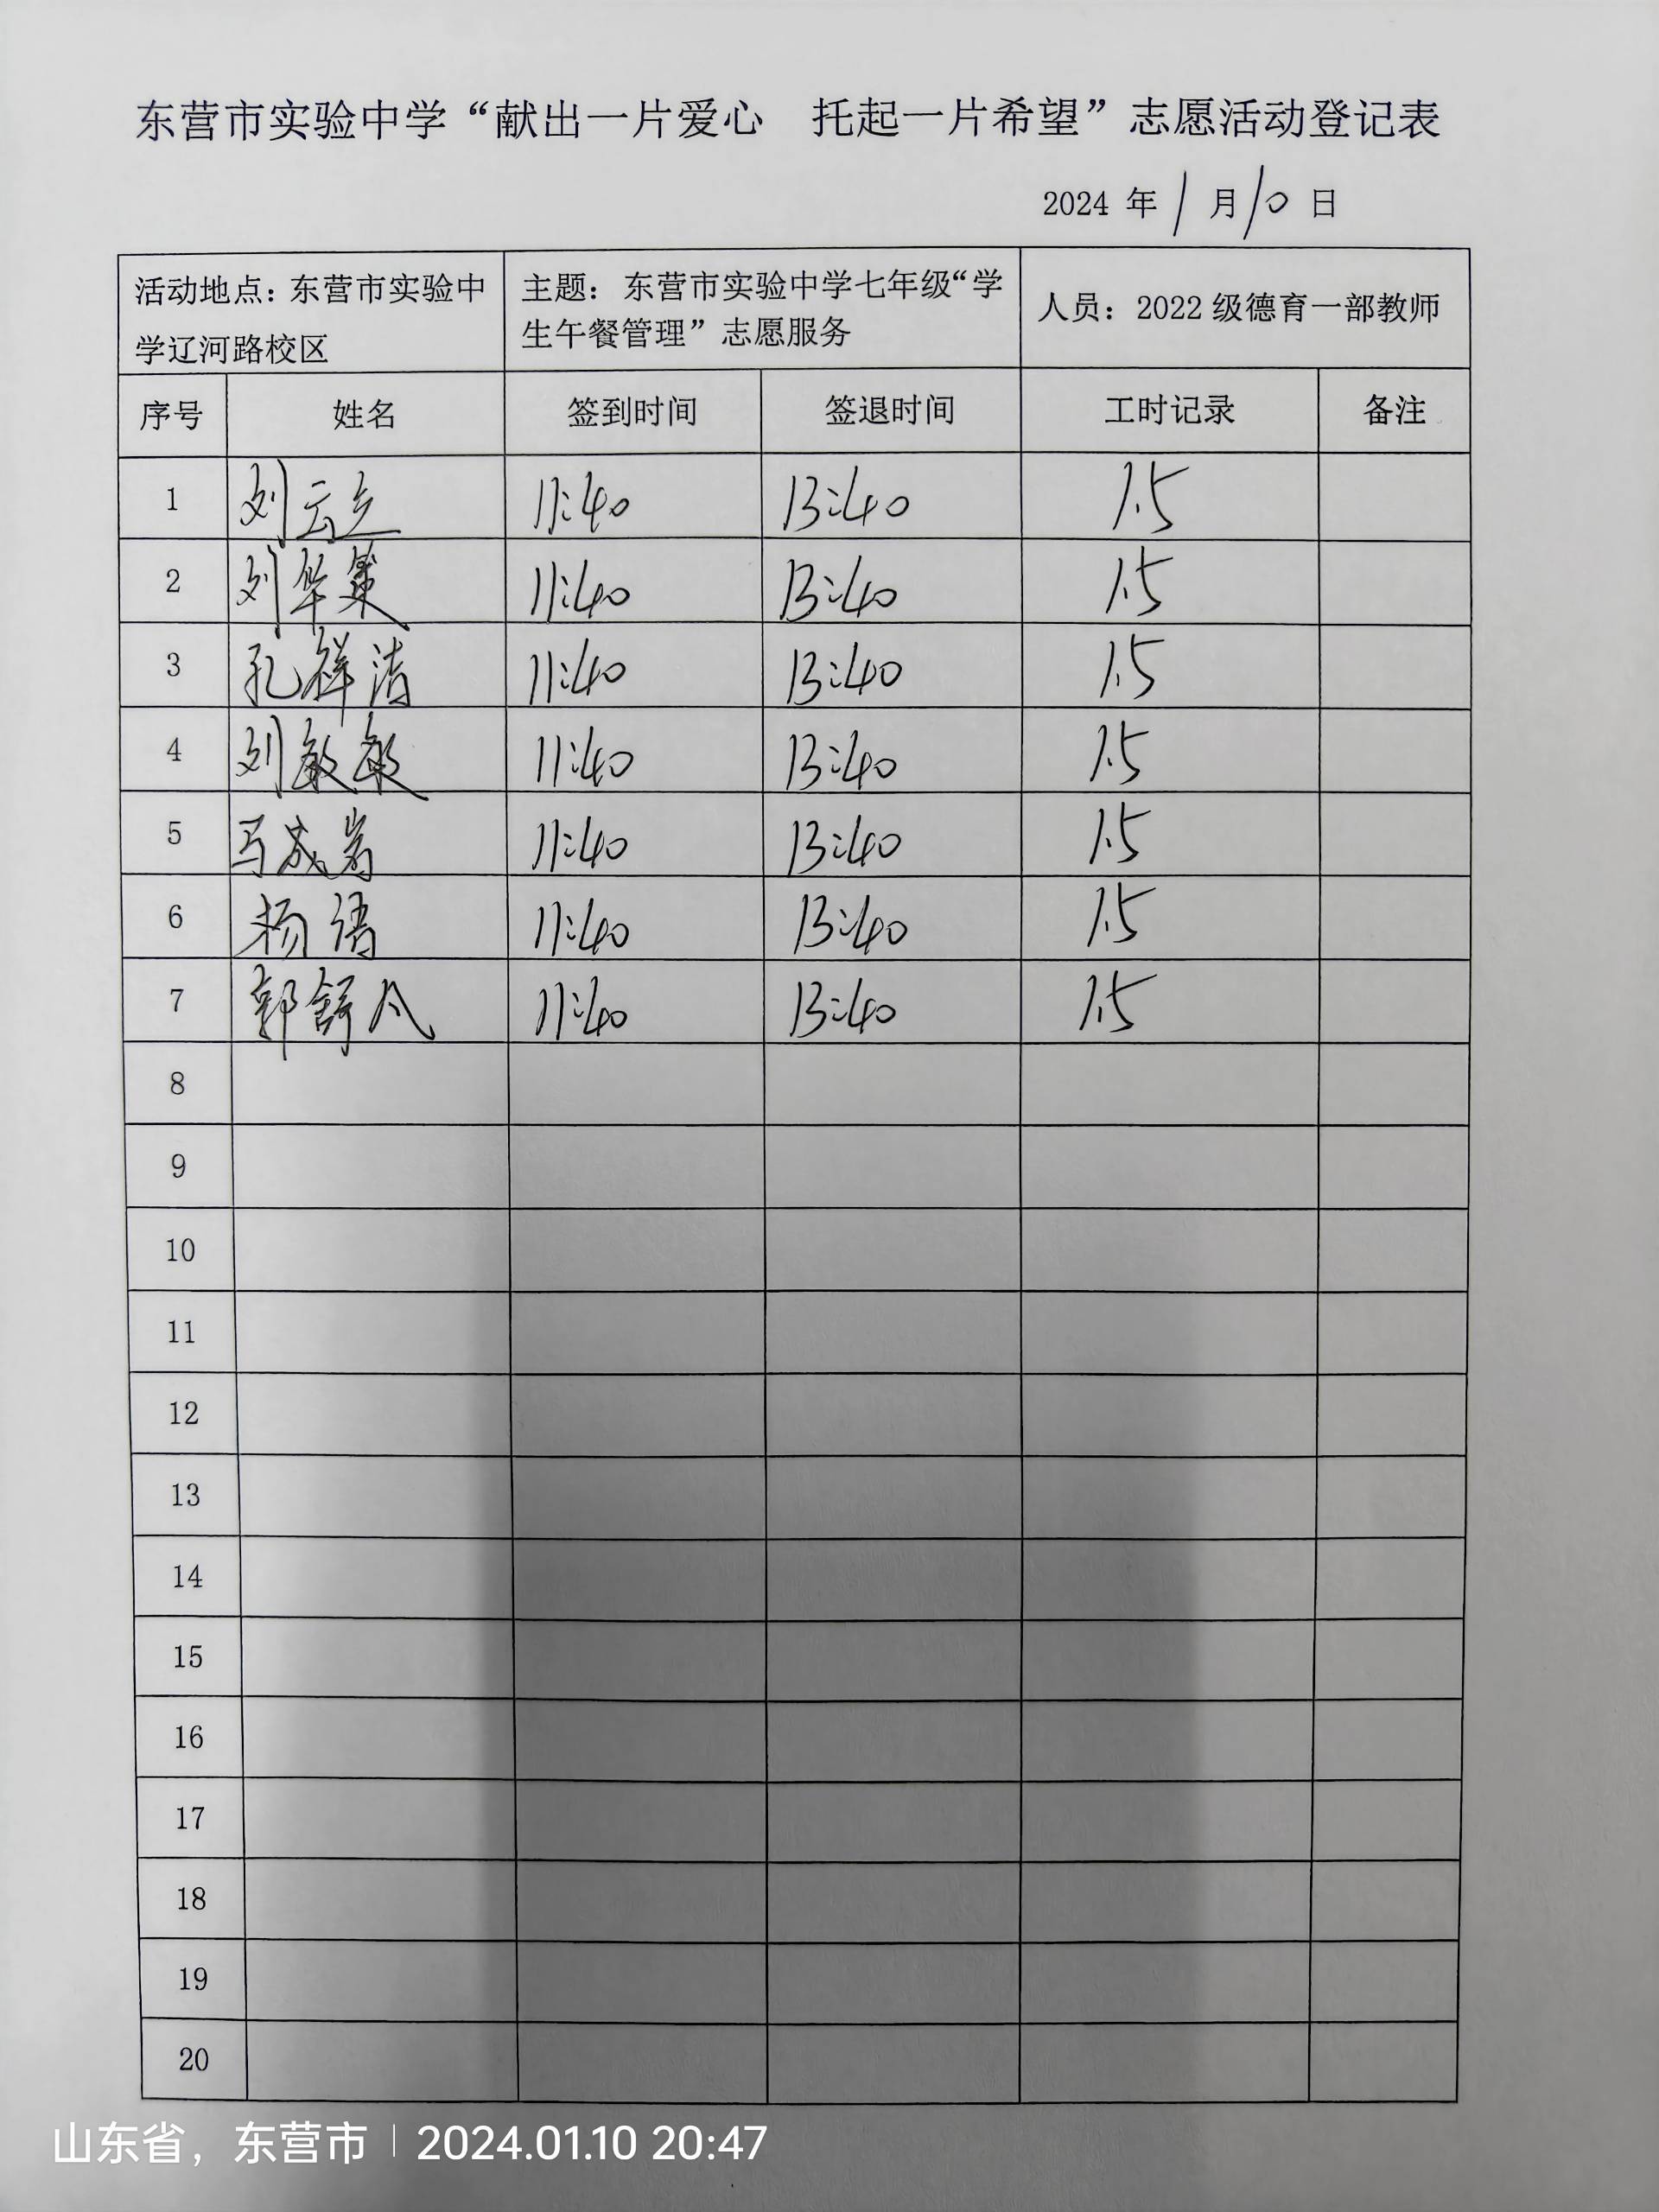 东营市实验中学“献出一片爱心 托起一片希望”志愿活动登记表
2024 年 1 月 10 日
活动地点：东营市实验中
学辽河路校区
主题： 东营市实验中学七年级“学
生午餐管理”志愿服务
人员：2022 级德育一部教师
序号 姓名 签到时间 签退时间 工时记录 备注
1 刘云立 11:40 13:40 1.5
2 刘华 11:40 13:40 1.5
3 孔祥洁 11:40 13:40 1.5
4 刘敏敏 11:40 13:40 1.5
5 马成岩 11:40 13:40 1.5
6 杨语 11:40 13:40 1.5
7 郭舒凡 11:40 13:40 1.5
8
9
10
11
12
13
14
15
16
17
18
19
20
山东省，东营市 | 2024.01.10 20:47